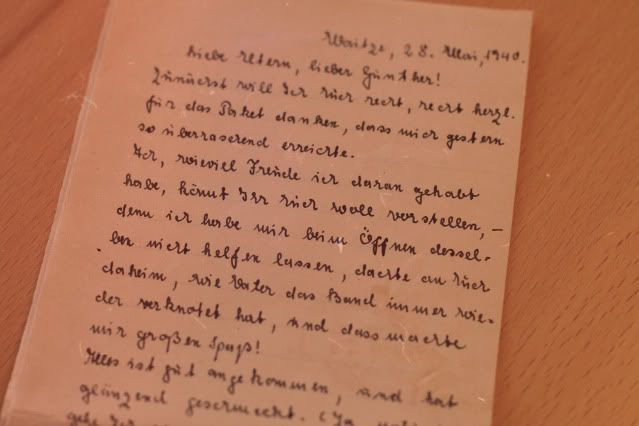 Waitze, 28. Mai, 1940.
Liebe Eltern, lieber Günther!
Zunächst will Ich Euch recht, recht herzl.
für das Paket danken, dass mich gestern
so überraschend erreichte.
Ich, wieviel Freude ich daran gehabt
habe, könnt Ihr Euch wohl vorstellen, –
denn ich habe mir beim Öffnen dessel-
ben nicht helfen lassen, dachte an Euch
daheim, wie Vater das Band immer wie-
der verknotet hat, und dass machte
mir großen Spaß!
Alles ist gut angekommen, und hat
glänzend geschmeckt. (Ja
gebe Ich